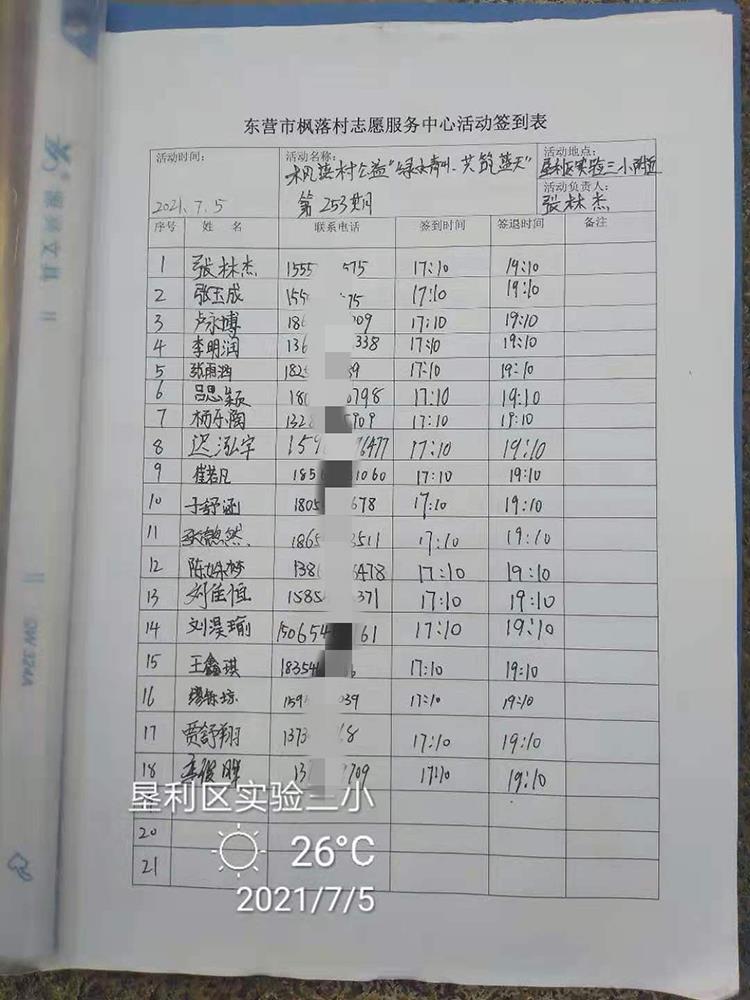 东营市枫落村志愿服务中心活动签到表
活动时间: 活动名称: 活动地点:
枫落村公益"绿水青山、共筑蓝天" 垦利区实验三小附近
活动负责人:
2021.7.5 第253期 张林杰
序号 姓名 联系电话 签到时间 签退时间 备注
1 张林杰 1555 575 17:10 19:10
2 张玉成 155 75 17:10 19:10
3 卢永博 18 09 17:10 19:10
4 李明润 136 338 17:10 19:10
5 张雨涵 182 9 17:10 19:10
6 吕思颖 18 798 17:10 19:10
7 杨乐陶 132 909 17:10 19:10
8 迟泓宇 159 6477 17:10 19:10
9 崔若凡 185 1060 17:10 19:10
10 于舒涵 1805 678 17:10 19:10
11 然 1865 3511 17:10 19:10
12 陈 梦 138 6478 17:10 19:10
13 刘佳恒 1585 371 17:10 19:10
14 刘昊瑜 150654 61 17:10 19:10
15 王鑫琪 18354 6 17:10 19:10
16 159 039 17:10 19:10
17 贾舒翔 1373 8 17:10 19:10
18 13 709 17:10 19:10
垦利区实验三小
20
26°C
21
2021/7/5
QW 324A